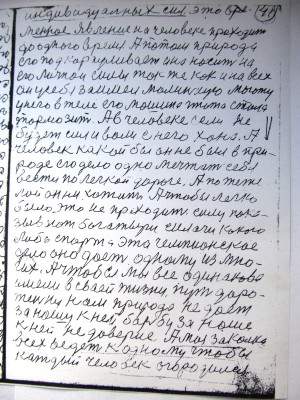 индивидуалных сил. это вре-
менное явление на человеке проходить
до одного время А потом природа
его подкарауливает она носит на
его личном силы так же как и на всех
у него в теле его
тормозит. А в человеке если не
будет силы воли с него хана. А
человек какой бы он не был в при-
роде его дело одно мечтат себя
вести по легкой дороге, А по тяже-
лой он ни хотить А чтобы легко
было, это не проходить силу пока-
зывают богатыри силачи какого
либо спорта эта чемпионское
дело оно дает одному из мно-
гих. А чтобы мы все одинаково
имели в своей жизни путь доро-
гу нам природа не дает
за нашу к ней борьбу за наше
к ней не доверие. А моя закалка
всех ведет к одному чтобы
каждый человек огородился